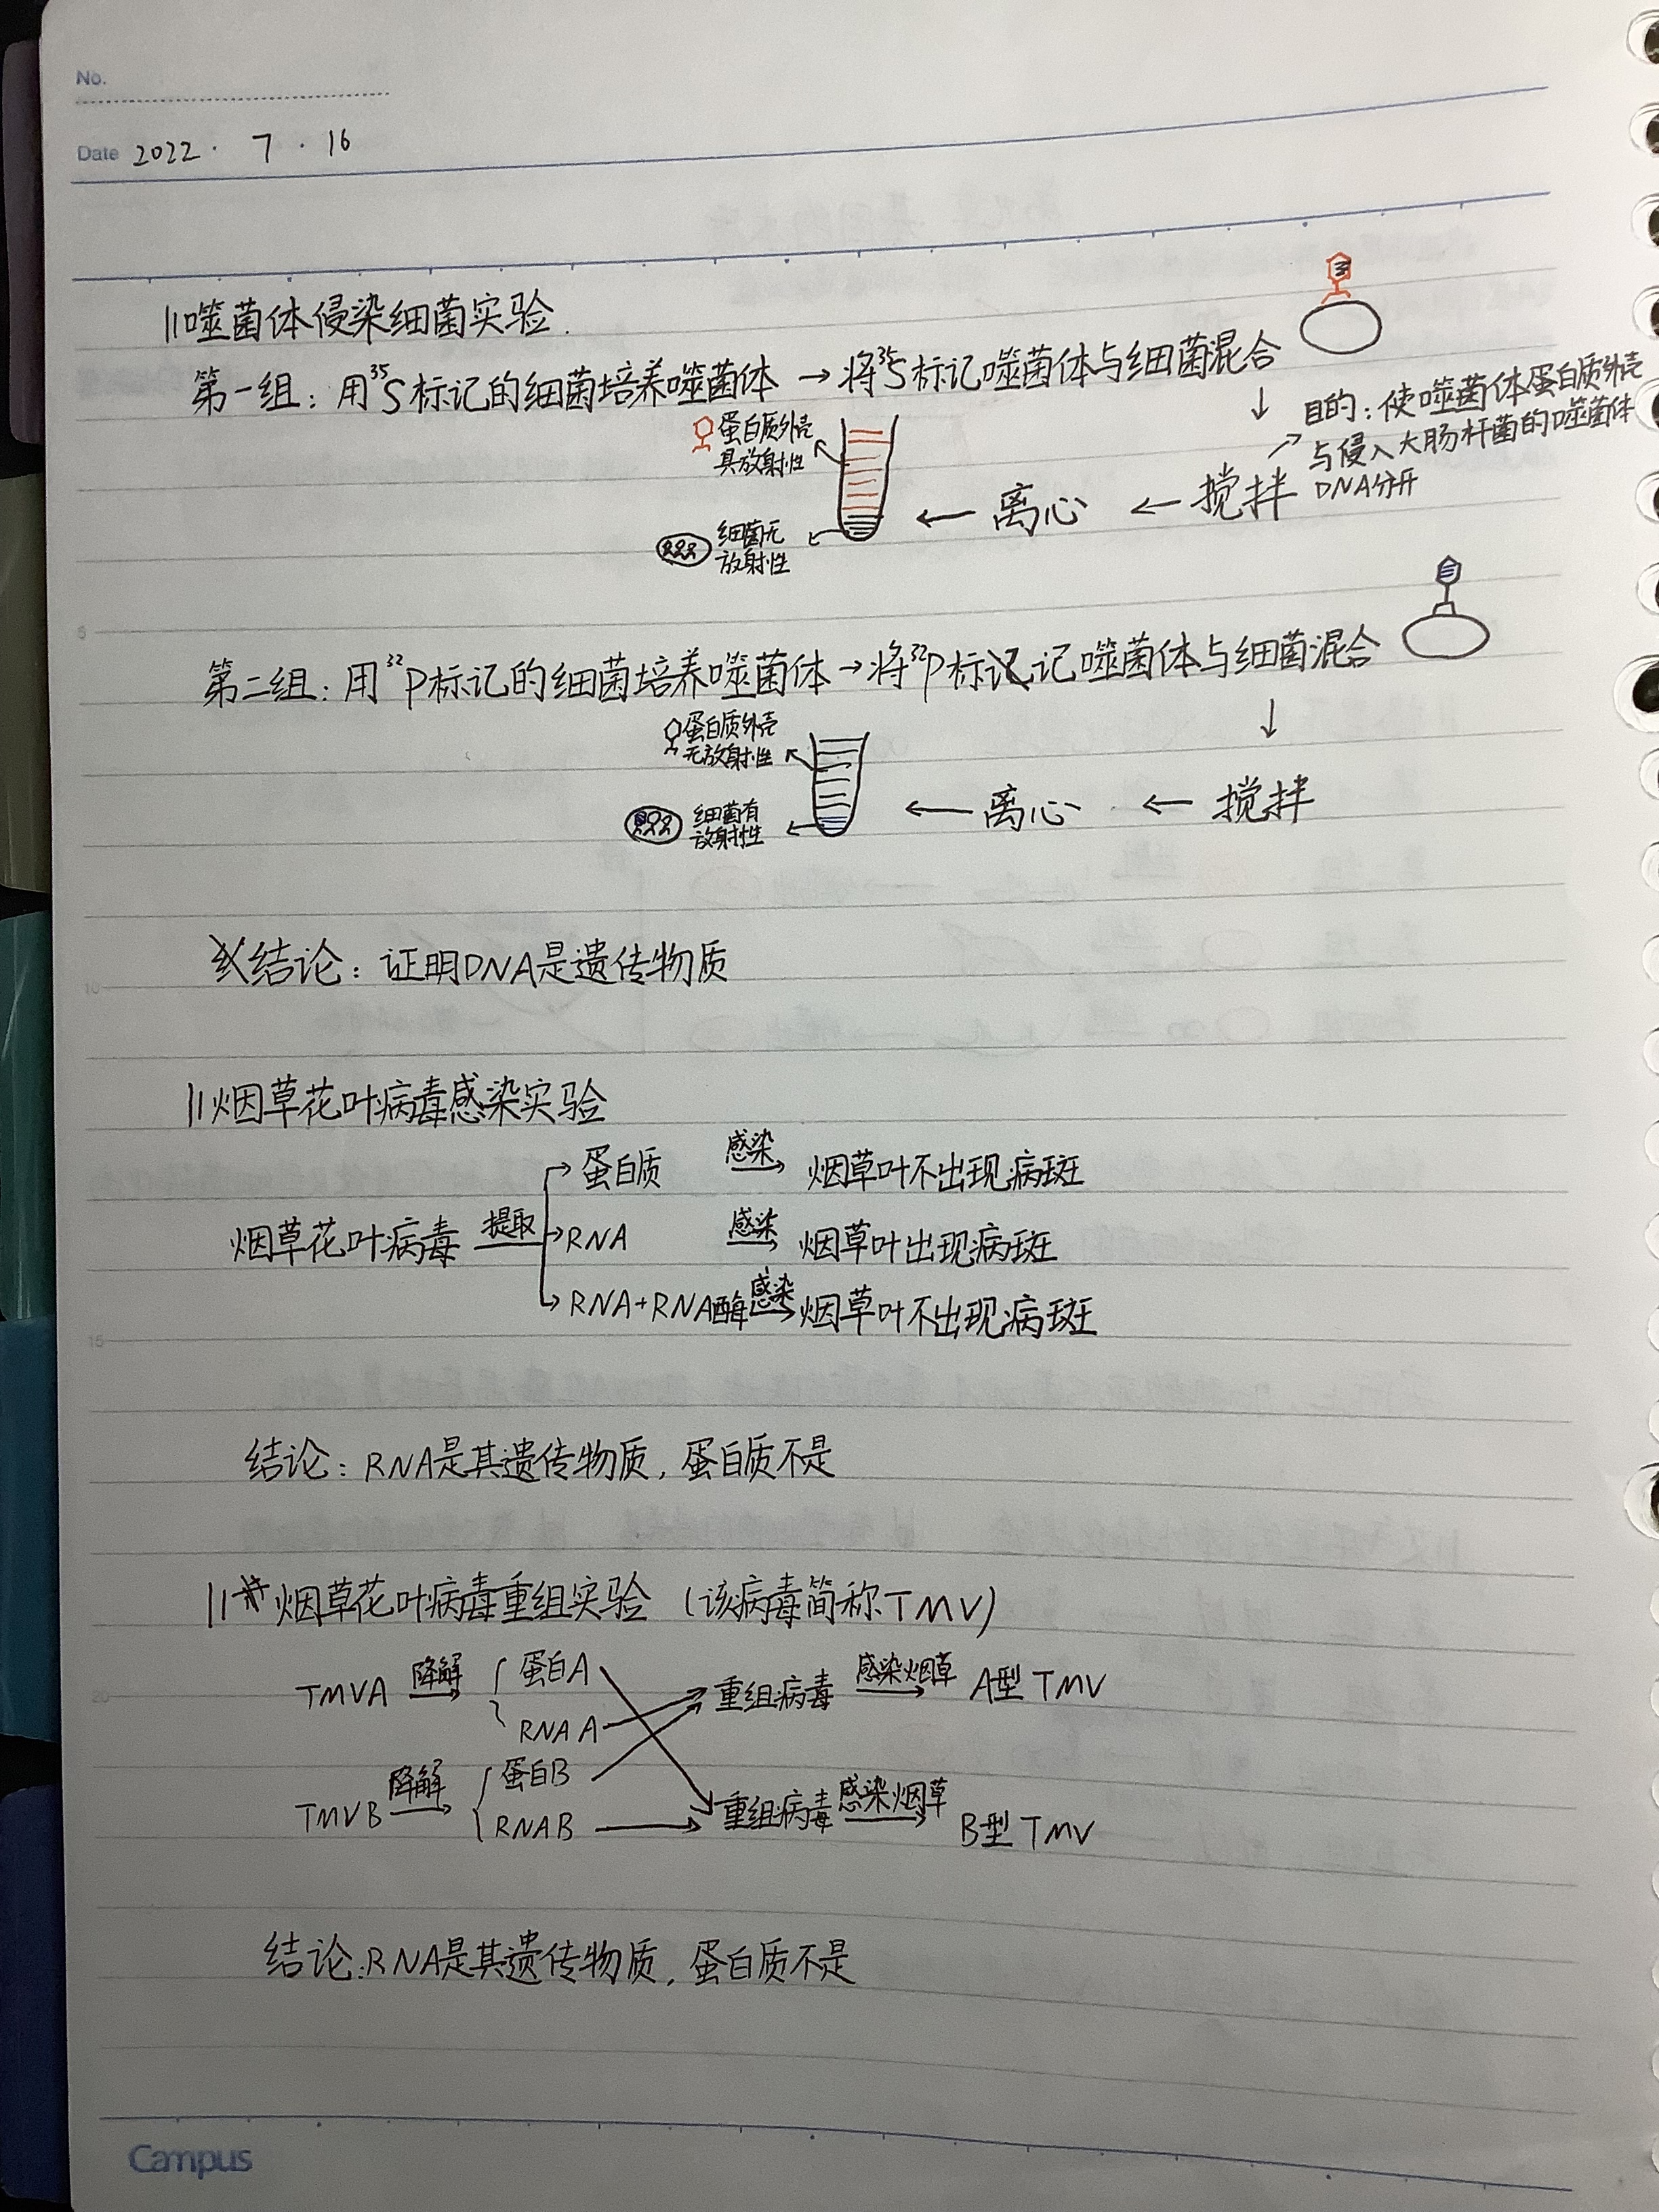 No.
Date 2022 · 7 · 16
噬菌体侵染细菌实验.
第一组：用³⁵S标记的细菌培养噬菌体 → 将³⁵S标记噬菌体与细菌混合
↓
目的：使噬菌体蛋白质外壳
与侵入大肠杆菌的噬菌体
DNA分开
搅拌
← 离心 ←
蛋白质外壳
具放射性
细菌无
放射性
5
第二组：用³²P标记的细菌培养噬菌体→将³²P标记噬菌体与细菌混合
↓
← 离心 ← 搅拌
蛋白质外壳
无放射性
细菌有
放射性
结论：证明DNA是遗传物质
10
烟草花叶病毒感染实验
蛋白质 感染→ 烟草叶不出现病斑
烟草花叶病毒 提取 →RNA 感染→ 烟草叶出现病斑
RNA+RNA酶 感染→ 烟草叶不出现病斑
15
结论：RNA是其遗传物质，蛋白质不是
烟草花叶病毒重组实验（该病毒简称TMV）
TMVA 降解→ { 蛋白A
RNA A
重组病毒 感染烟草→ A型TMV
20
TMVB 降解→ { 蛋白B
RNAB
重组病毒 感染烟草→ B型TMV
结论：RNA是其遗传物质，蛋白质不是
Campus